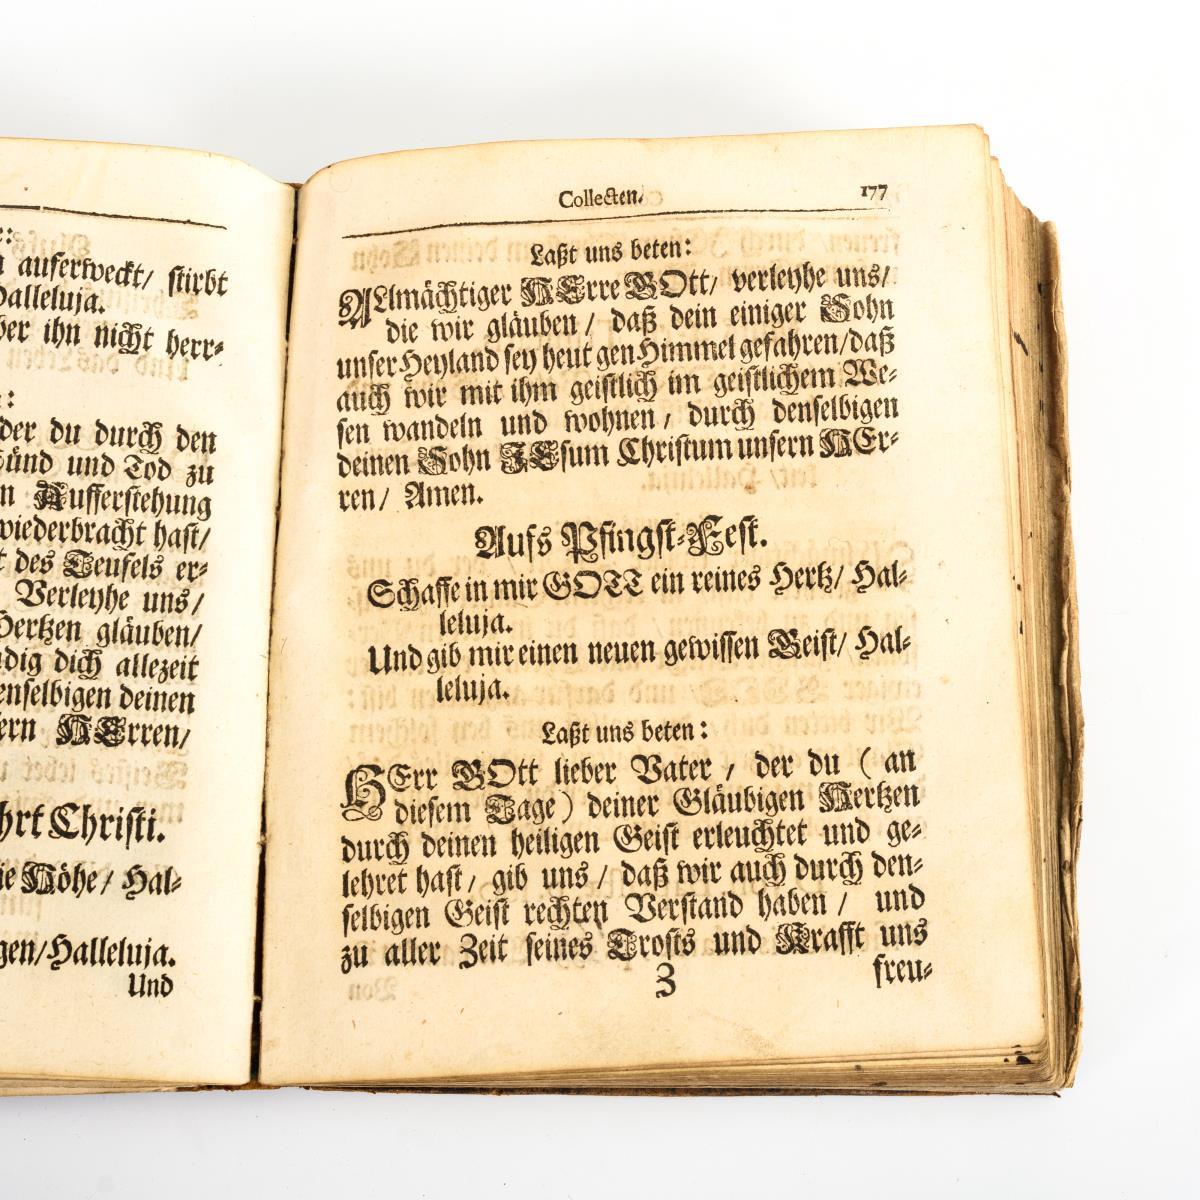 auferweckt/ stirbt
Halleluja.
ihn nicht herr-
der du durch den
Sünd und Tod zu
Aufferstehung
wiederbracht hast/
des Teufels er-
Verleyhe uns/
Hertzen gläuben/
dich allezeit
denselbigen deinen
HErren/
Christi.
Höhe/ Hal-
Halleluja.
Und
Collecten. 177
Laßt uns beten:
ALlmächtiger HErre GOtt/ verleyhe uns/
die wir gläuben/ daß dein einiger Sohn
unser Heyland sey heut gen Himmel gefahren/daß
auch wir mit ihm geistlich im geistlichem We-
sen wandeln und wohnen/ durch denselbigen
deinen Sohn JEsum Christum unsern HEr-
ren/ Amen.
Aufs Pfingst-Fest.
Schaffe in mir GOTT ein reines Hertz/ Hal-
leluja.
Und gib mir einen neuen gewissen Geist/ Hal-
leluja.
Laßt uns beten:
HErr GOtt lieber Vater/ der du (an
diesem Tage) deiner Gläubigen Hertzen
durch deinen heiligen Geist erleuchtet und ge-
lehret hast/ gib uns/ daß wir auch durch den-
selbigen Geist rechten Verstand haben/ und
zu aller Zeit seines Trosts und Krafft uns
Z freu-